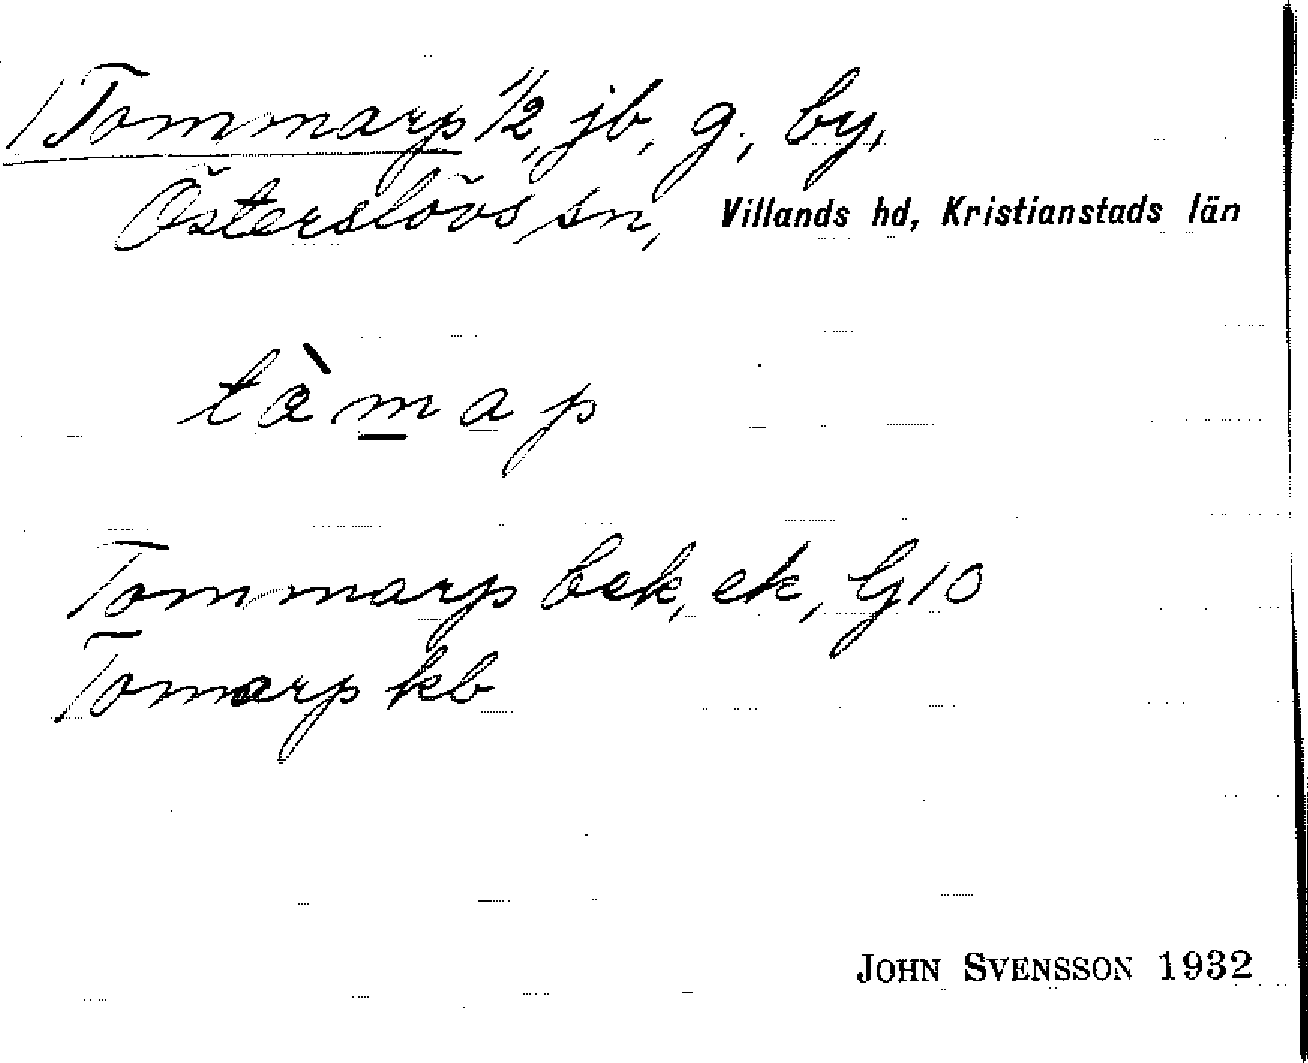 Tommarp ½, jb, g., by,
Österslövs sn, Villands hd, Kristianstads län
tàmap
Tommarp bek, ek, G10
Tomarp kb
JOHN SVENSSON 1932